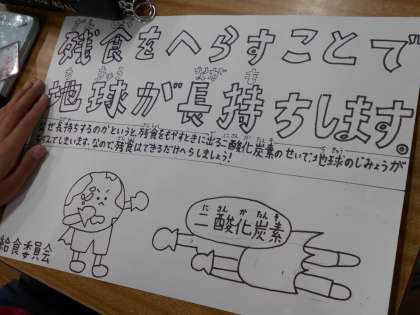 ざん しょく
残食をへらすことで
ち きゅう なが も
地球が長持ちします。
なぜ長持ちするのかというと、残食をもやすときに出る二酸化炭素のせいで、地球のじみょうが
んでしまいます。なので、残食はできるだけへらしましょう!
に さん か たん そ
二酸化炭素
給食委員会